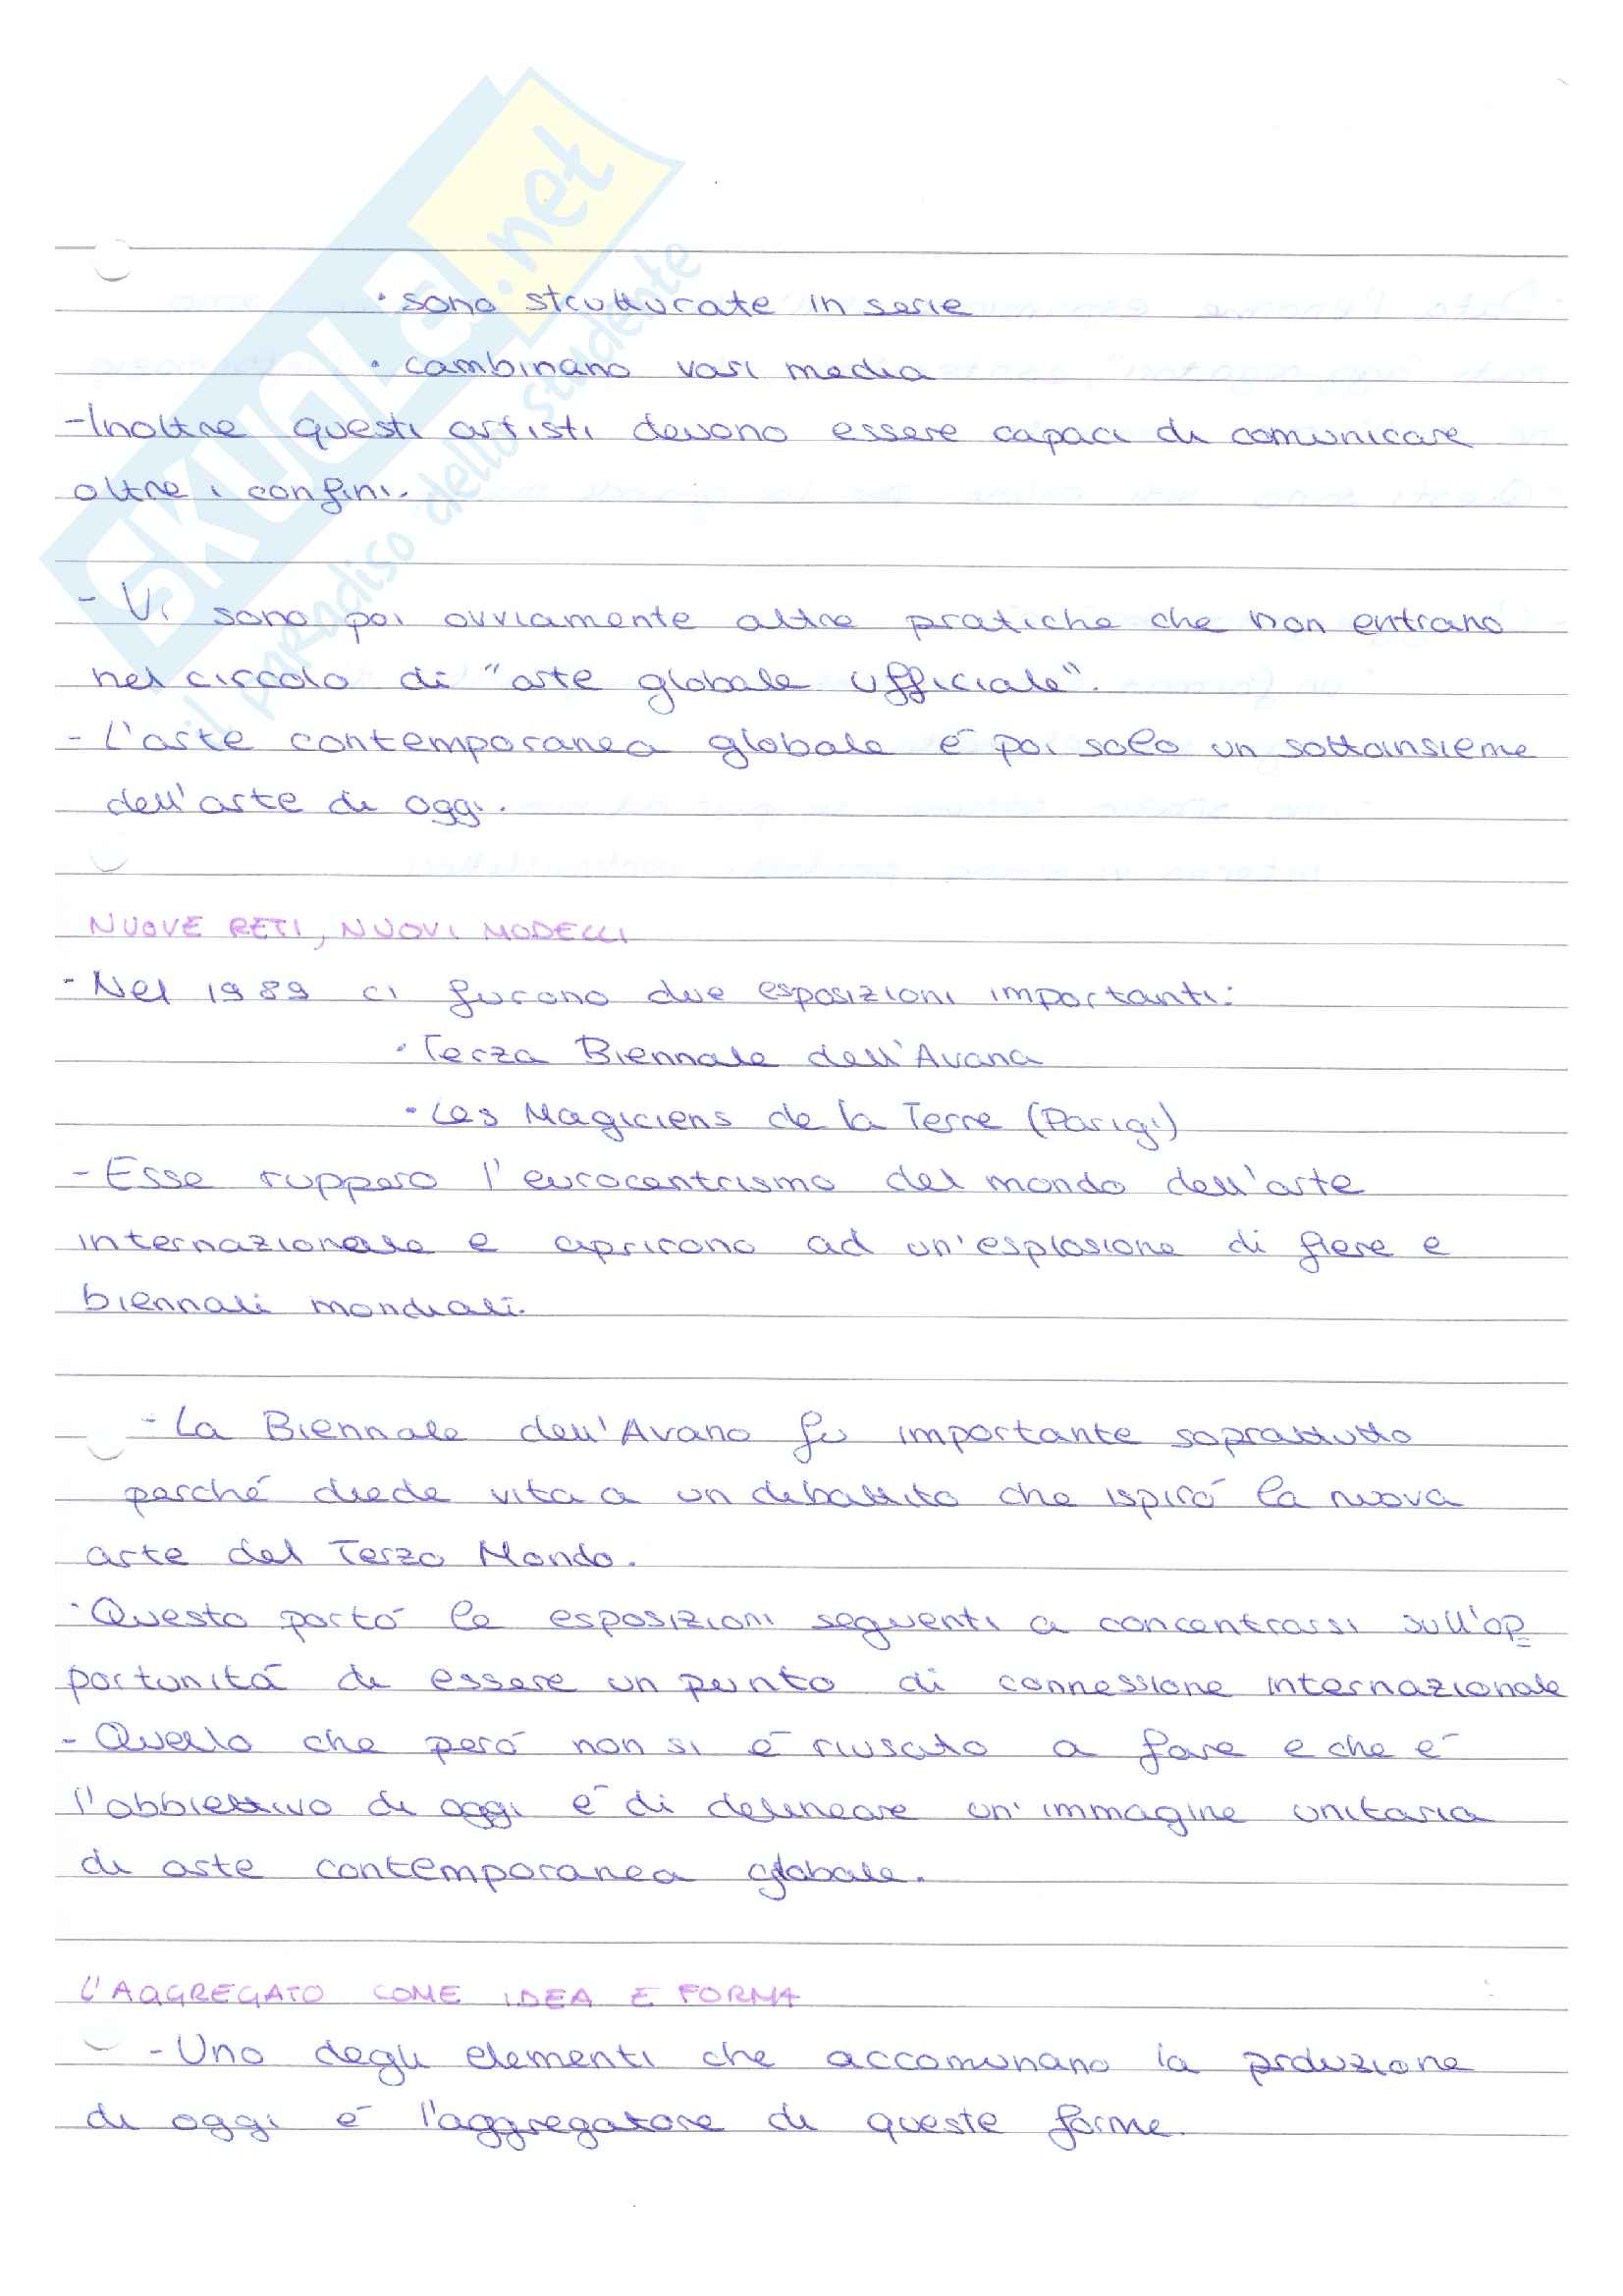 SKUOLA.net
il paradiso dello studente
· sono strutturate in serie
· combinano vari media
- Inoltre questi artisti devono essere capaci di comunicare
oltre i confini.
- Vi sono poi ovviamente altre pratiche che non entrano
nel circolo di "arte globale ufficiale".
- L'arte contemporanea globale è poi solo un sottoinsieme
dell'arte di oggi.
NUOVE RETI, NUOVI MODELLI
- Nel 1989 ci furono due esposizioni importanti:
· Terza Biennale dell'Avana
· Les Magiciens de la Terre (Parigi)
- Esse ruppero l'eurocentrismo del mondo dell'arte
internazionale e aprirono ad un'esplosione di fiere e
biennali mondiali.
- La Biennale dell'Avano fu importante soprattutto
perché diede vita a un dibattito che ispirò la nuova
arte del Terzo Mondo.
· Questo portò le esposizioni seguenti a concentrarsi sull'op=
portunità di essere un punto di connessione internazionale
- Quello che però non si è riuscito a fare e che è
l'obbiettivo di oggi è di delineare un'immagine unitaria
di arte contemporanea globale.
L'AGGREGATO COME IDEA E FORMA
- Uno degli elementi che accomunano la prduzione
di oggi è l'aggregatore di queste forme.